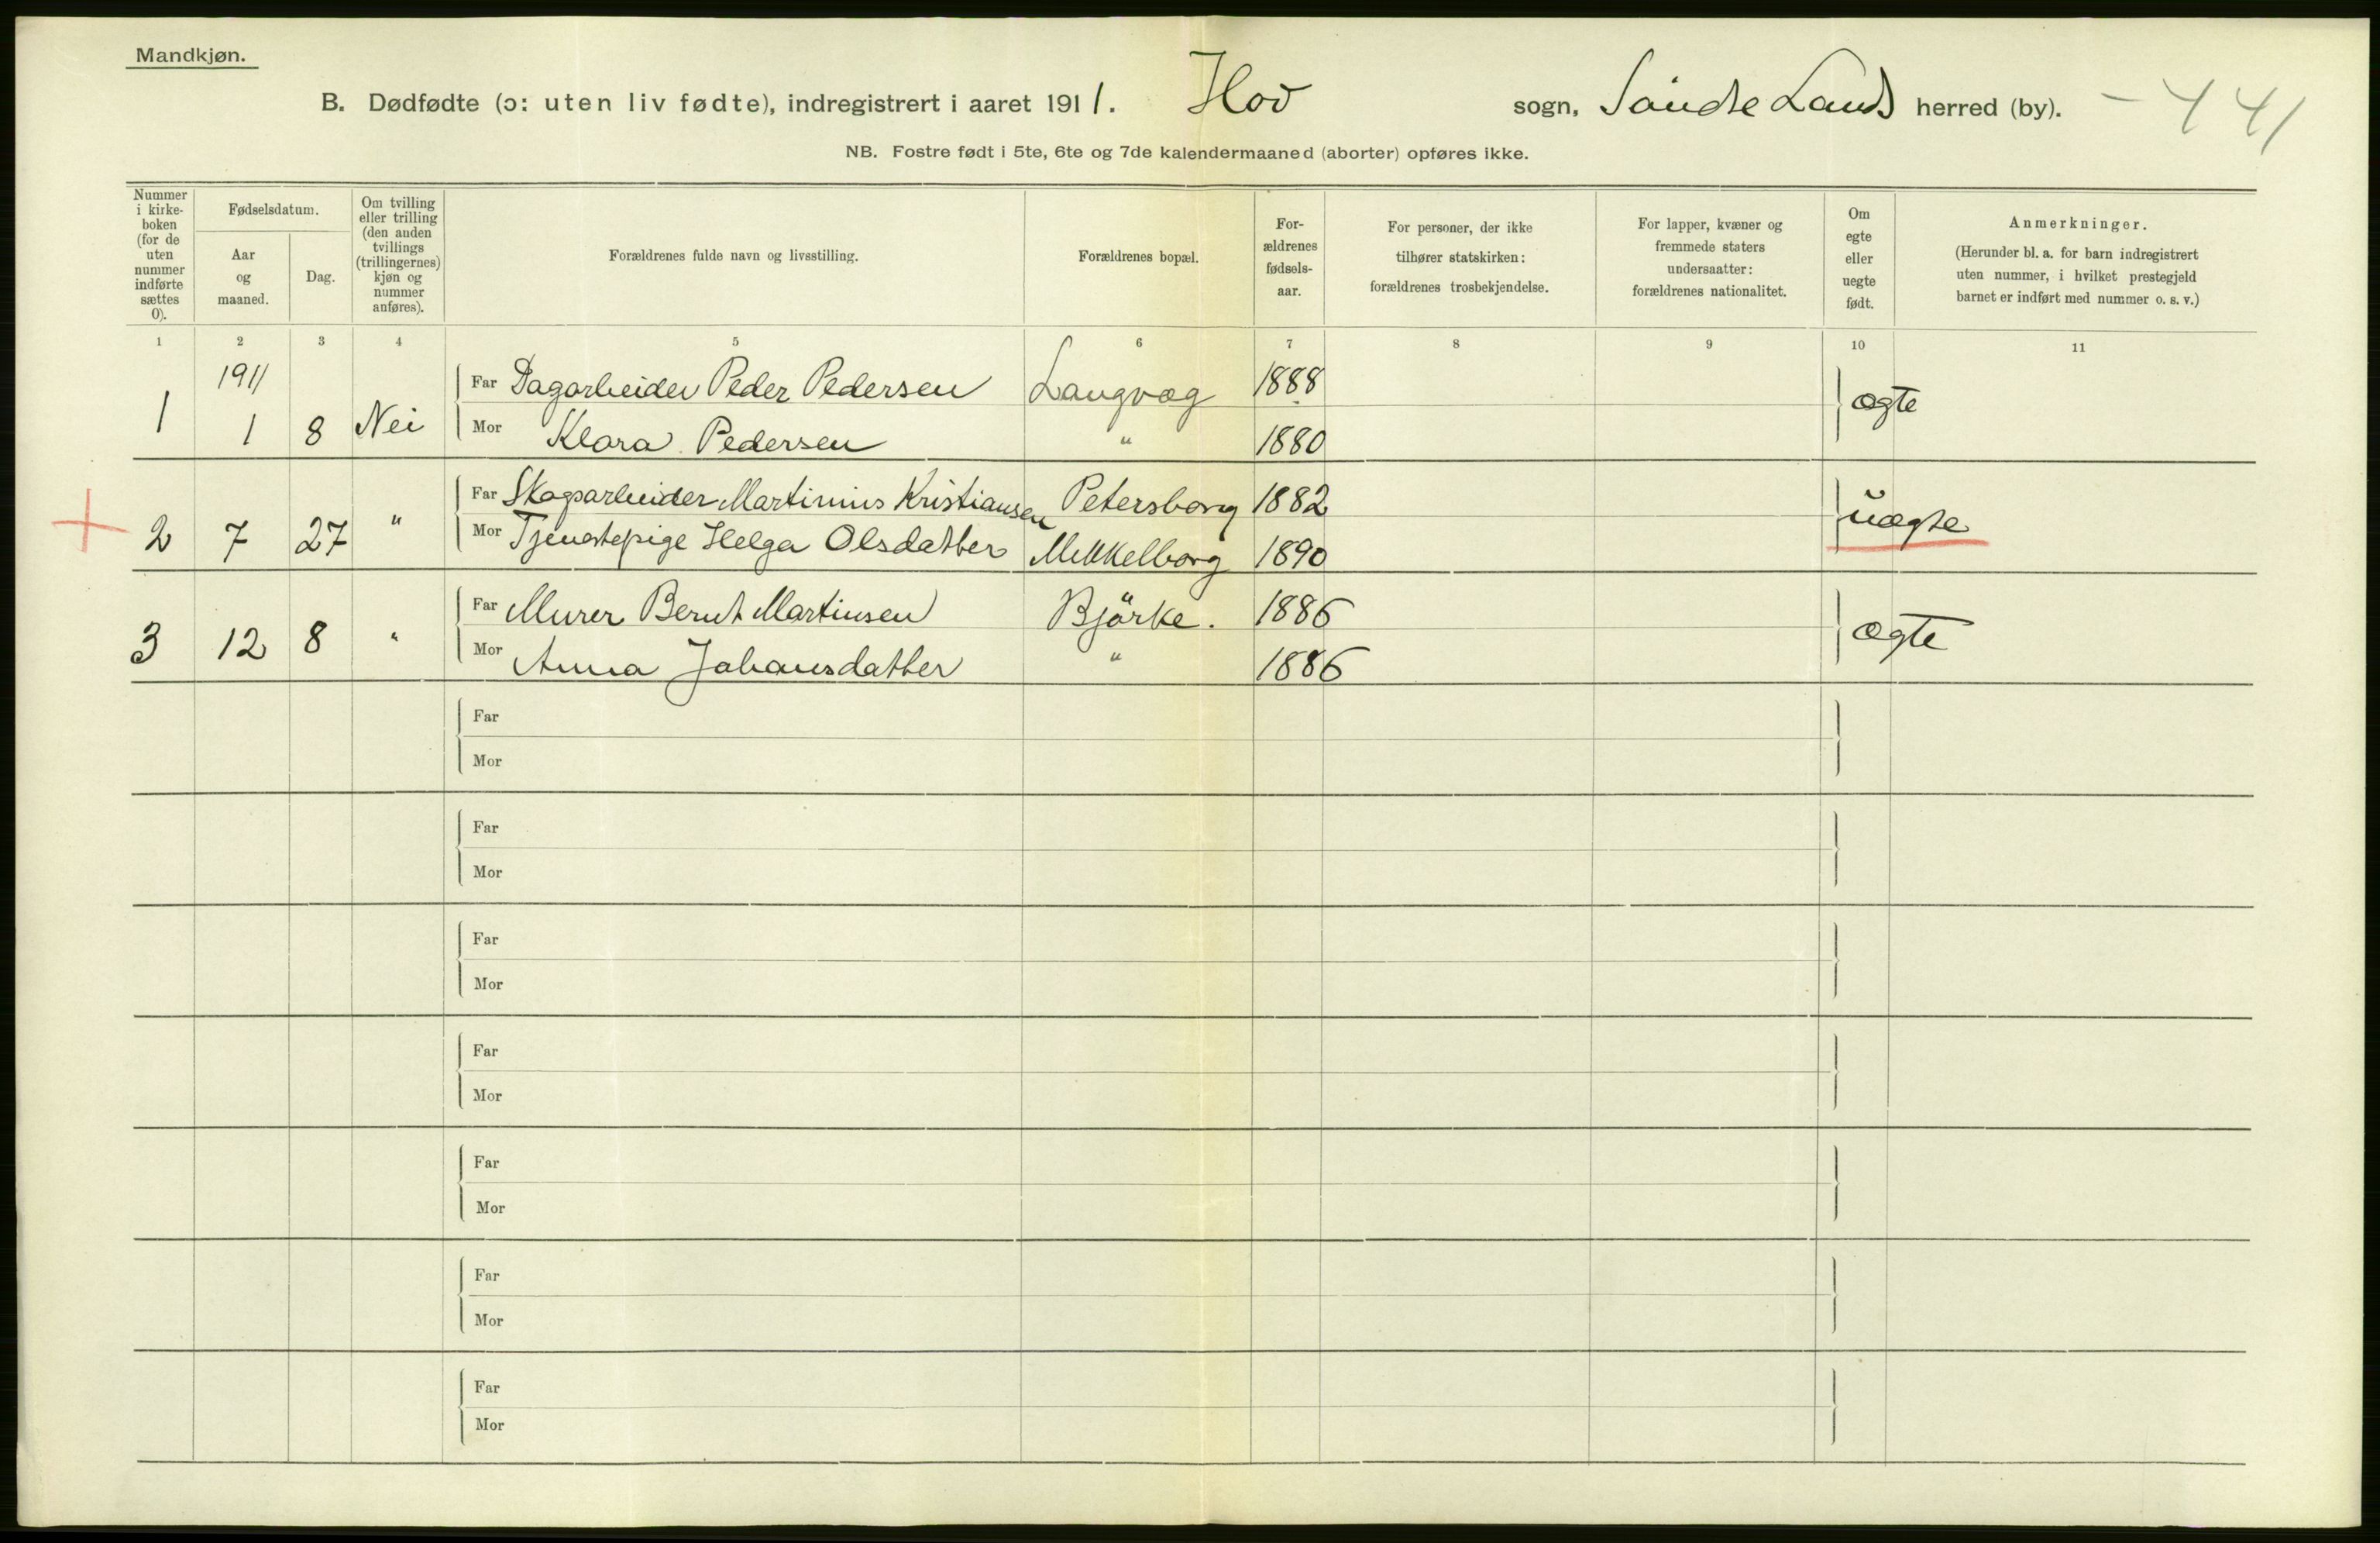 Mandkjøn.
B. Dødfødte (ɔ: uten liv fødte), indregistrert i aaret 1911. Hov sogn, Søndre Lands herred (by). – 441
NB. Fostre født i 5te, 6te og 7de kalendermaaned (aborter) opføres ikke.
Nummer i kirke-boken (for de uten nummer indførte sættes 0).
Fødselsdatum.
Aar og maaned.
Dag.
Om tvilling eller trilling (den anden tvillings (trillingernes) kjøn og nummer anføres).
Forældrenes fulde navn og livsstilling.
Forældrenes bopæl.
For-ældrenes fødsels-aar.
For personer, der ikke tilhører statskirken: forældrenes trosbekjendelse.
For lapper, kvæner og fremmede staters undersaatter: forældrenes nationalitet.
Om egte eller uegte født.
Anmerkninger.
(Herunder bl. a. for barn indregistrert uten nummer, i hvilket prestegjeld barnet er indført med nummer o. s. v.)
1 2 3 4 5 6 7 8 9 10 11
1911
Far Dagarbeider Peder Pedersen Langvæg 1888 ægte
1 1 8 Nei Mor Klara Pedersen " 1880
Far Skogsarbeider Martinius Kristiansen Petersborg 1882 uægte
+ 2 7 27 " Mor Tjenestepige Helga Olsdatter Mikkelborg 1890
Far Murer Bernt Martinsen Björke. 1886 ægte
3 12 8 " Mor Anna Johansdatter " 1886
Far
Mor
Far
Mor
Far
Mor
Far
Mor
Far
Mor
Far
Mor
Far
Mor